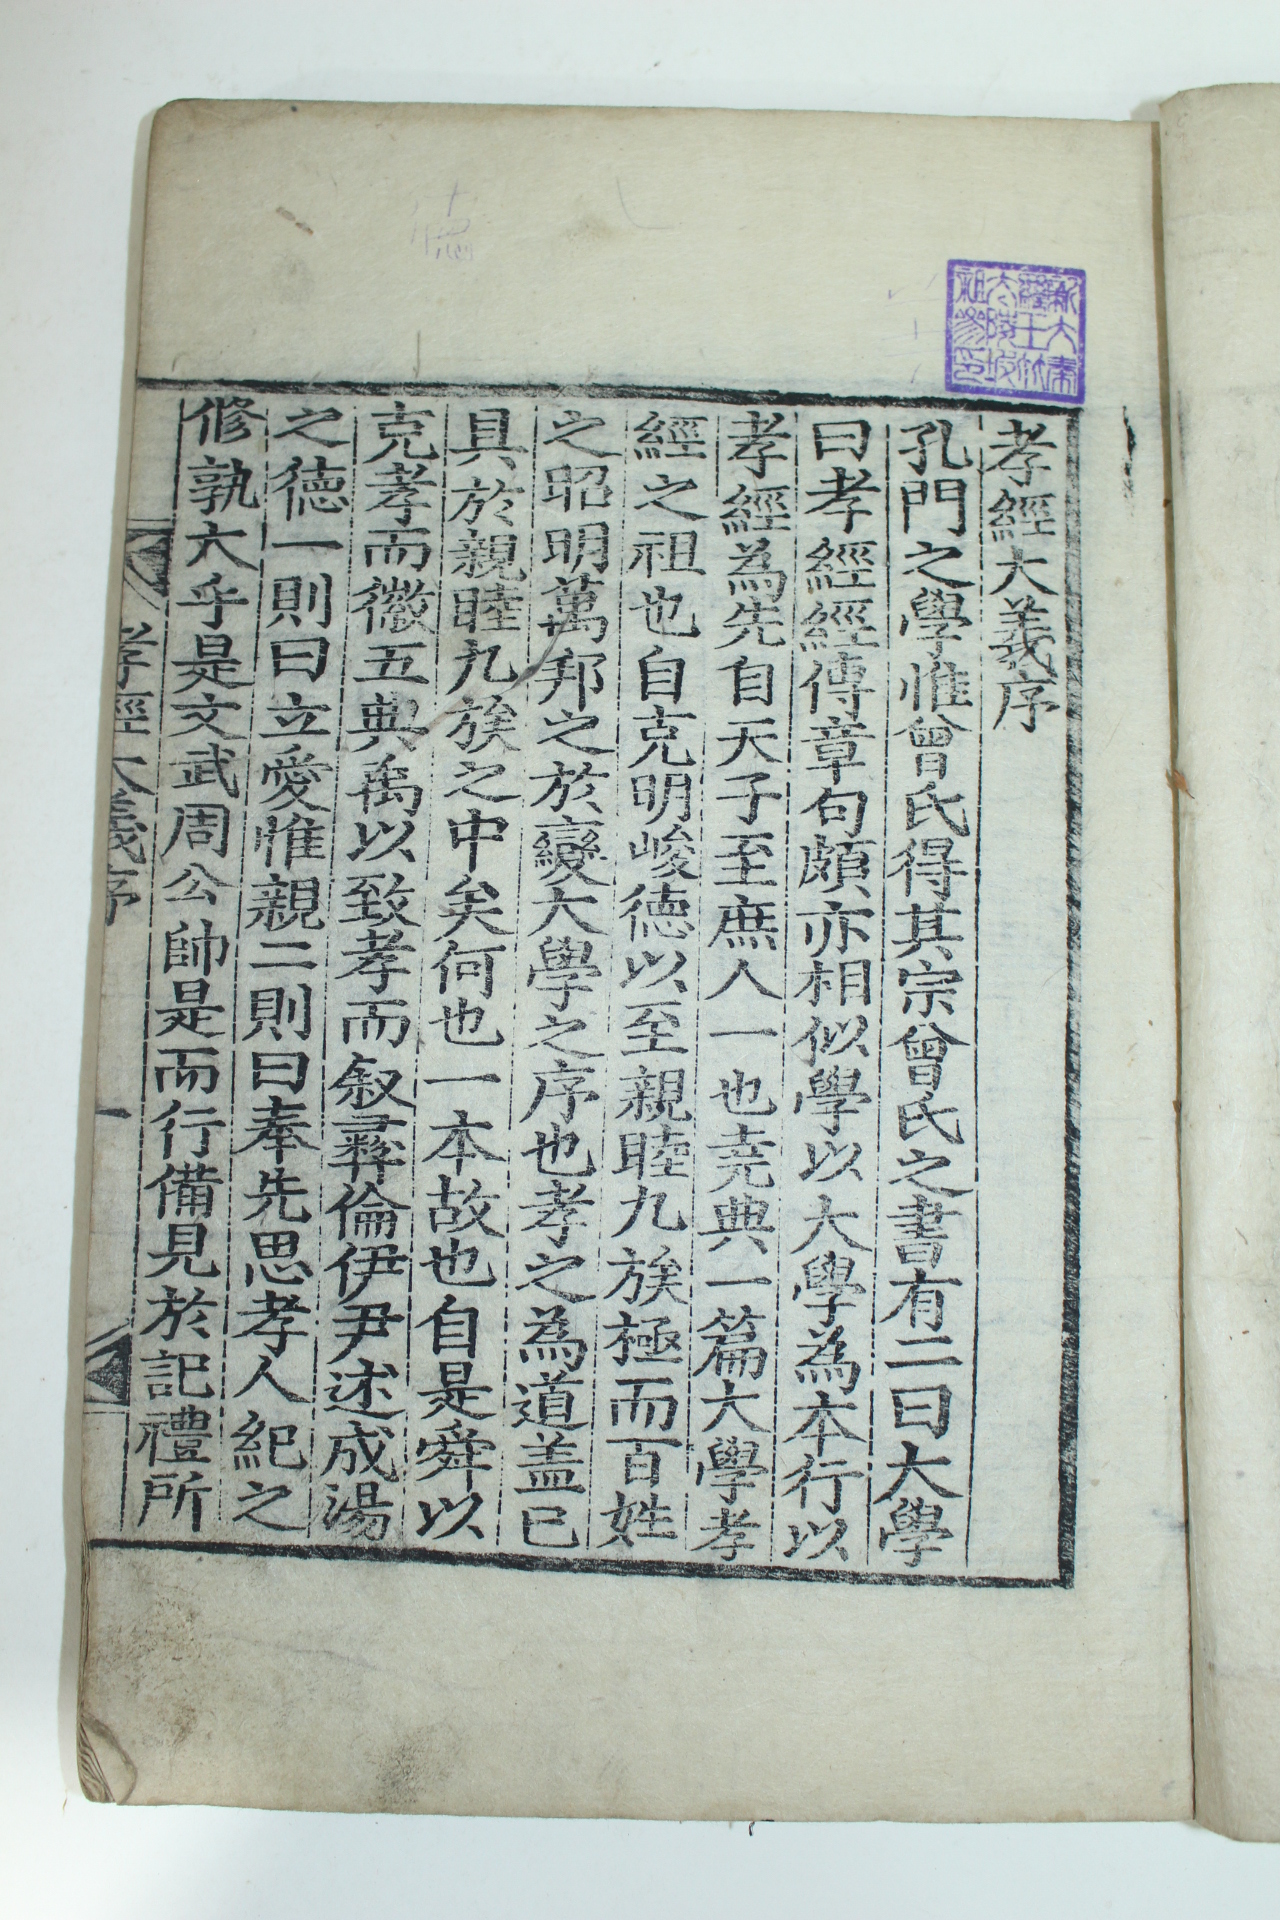 孝經大義序
孔門之學惟曾氏得其宗曾氏之書有二曰大學
曰孝經經傳章句頗亦相似學以大學為本行以
孝經為先自天子至庶人一也堯典一篇大學孝
經之祖也自克明峻德以至親睦九族極而百姓
之昭明萬邦之於變大學之序也孝之為道盖已
具於親睦九族之中矣何也一本故也自是舜以
克孝而徽五典禹以致孝而叙彝倫伊尹述成湯
之德一則曰立愛惟親二則曰奉先思孝人紀之
修孰大乎是文武周公帥是而行備見於記禮所
孝經大義序 一